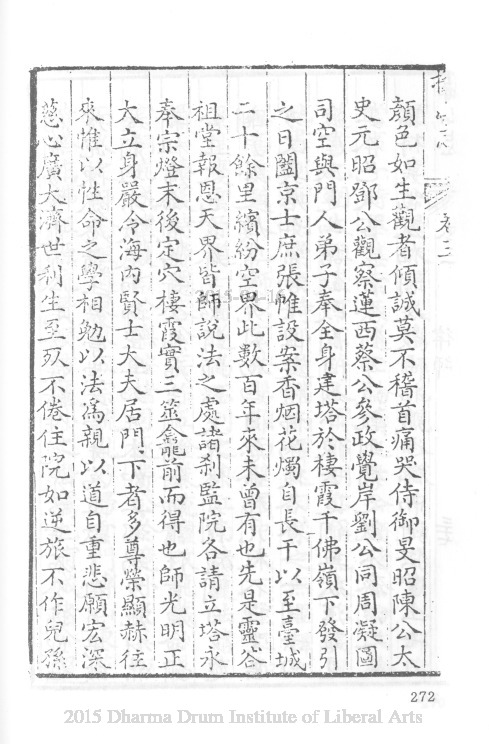 顏色如生觀者傾誠莫不稽首痛哭侍御旻昭陳公太
史元昭鄧公觀察蓮西蔡公參政覺岸劉公同周凝圖
司空與門人弟子奉全身建塔於棲霞千佛嶺下發引
之日闔京士庶張帷設案香烟花燭自長干以至臺城
二十餘里繽紛空界此數百年來未曾有也先是靈谷
祖堂報恩天界皆師說法之處諸刹監院各請立塔永
奉宗燈末後定穴棲霞實三筮龕前而得也師光明正
大立身嚴冷海內賢士大夫居門下者多尊榮顯赫往
來惟以性命之學相勉以法爲親以道自重悲願宏深
慈心廣大濟世利生至歿不倦住院如逆旅不作兒孫
卷三
272
2015 Dharma Drum Institute of Liberal Arts